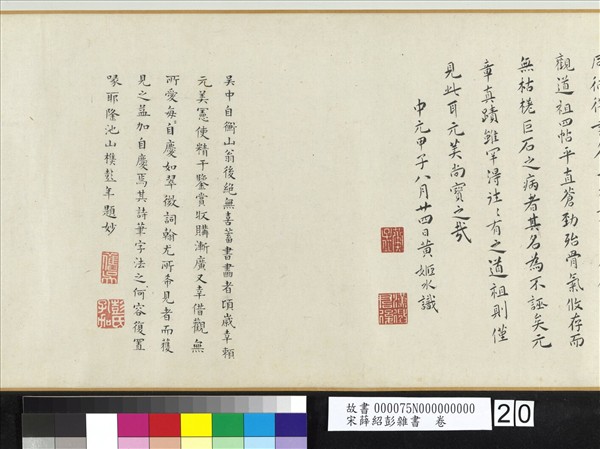 觀道祖四帖平直蒼勁殆骨氣攸存而
無枯槎巨石之病者其名為不誣矣元
章真蹟雖罕得往〻有之道祖則僅
見此耳元美尚寶之哉
中元甲子八月廿四日黃姬水識
吳中自衡山翁後絕無喜蓄書畫者頃歲幸賴
元美憲使精于鑒賞收購漸廣又幸借觀無
所愛每自慶如翠微詞翰尤所希見者而獲
見之益加自慶焉其詩筆字法之何容復置
喙耶隆池山樵彭年題妙
彭氏孔加
故書 000075N000000000
宋薛紹彭雜書 卷
20